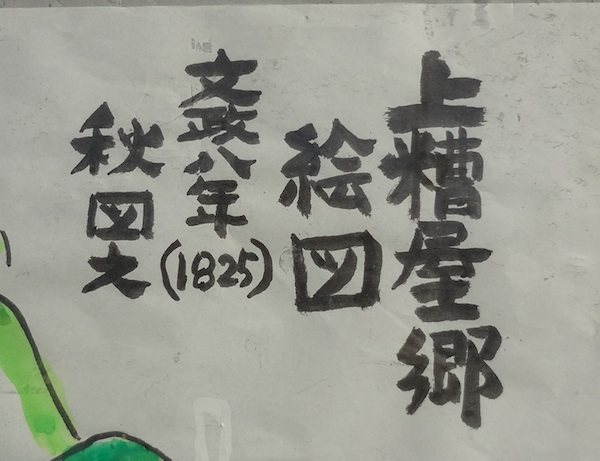 上糟屋郷
絵図
文政八年(1825)
秋図之